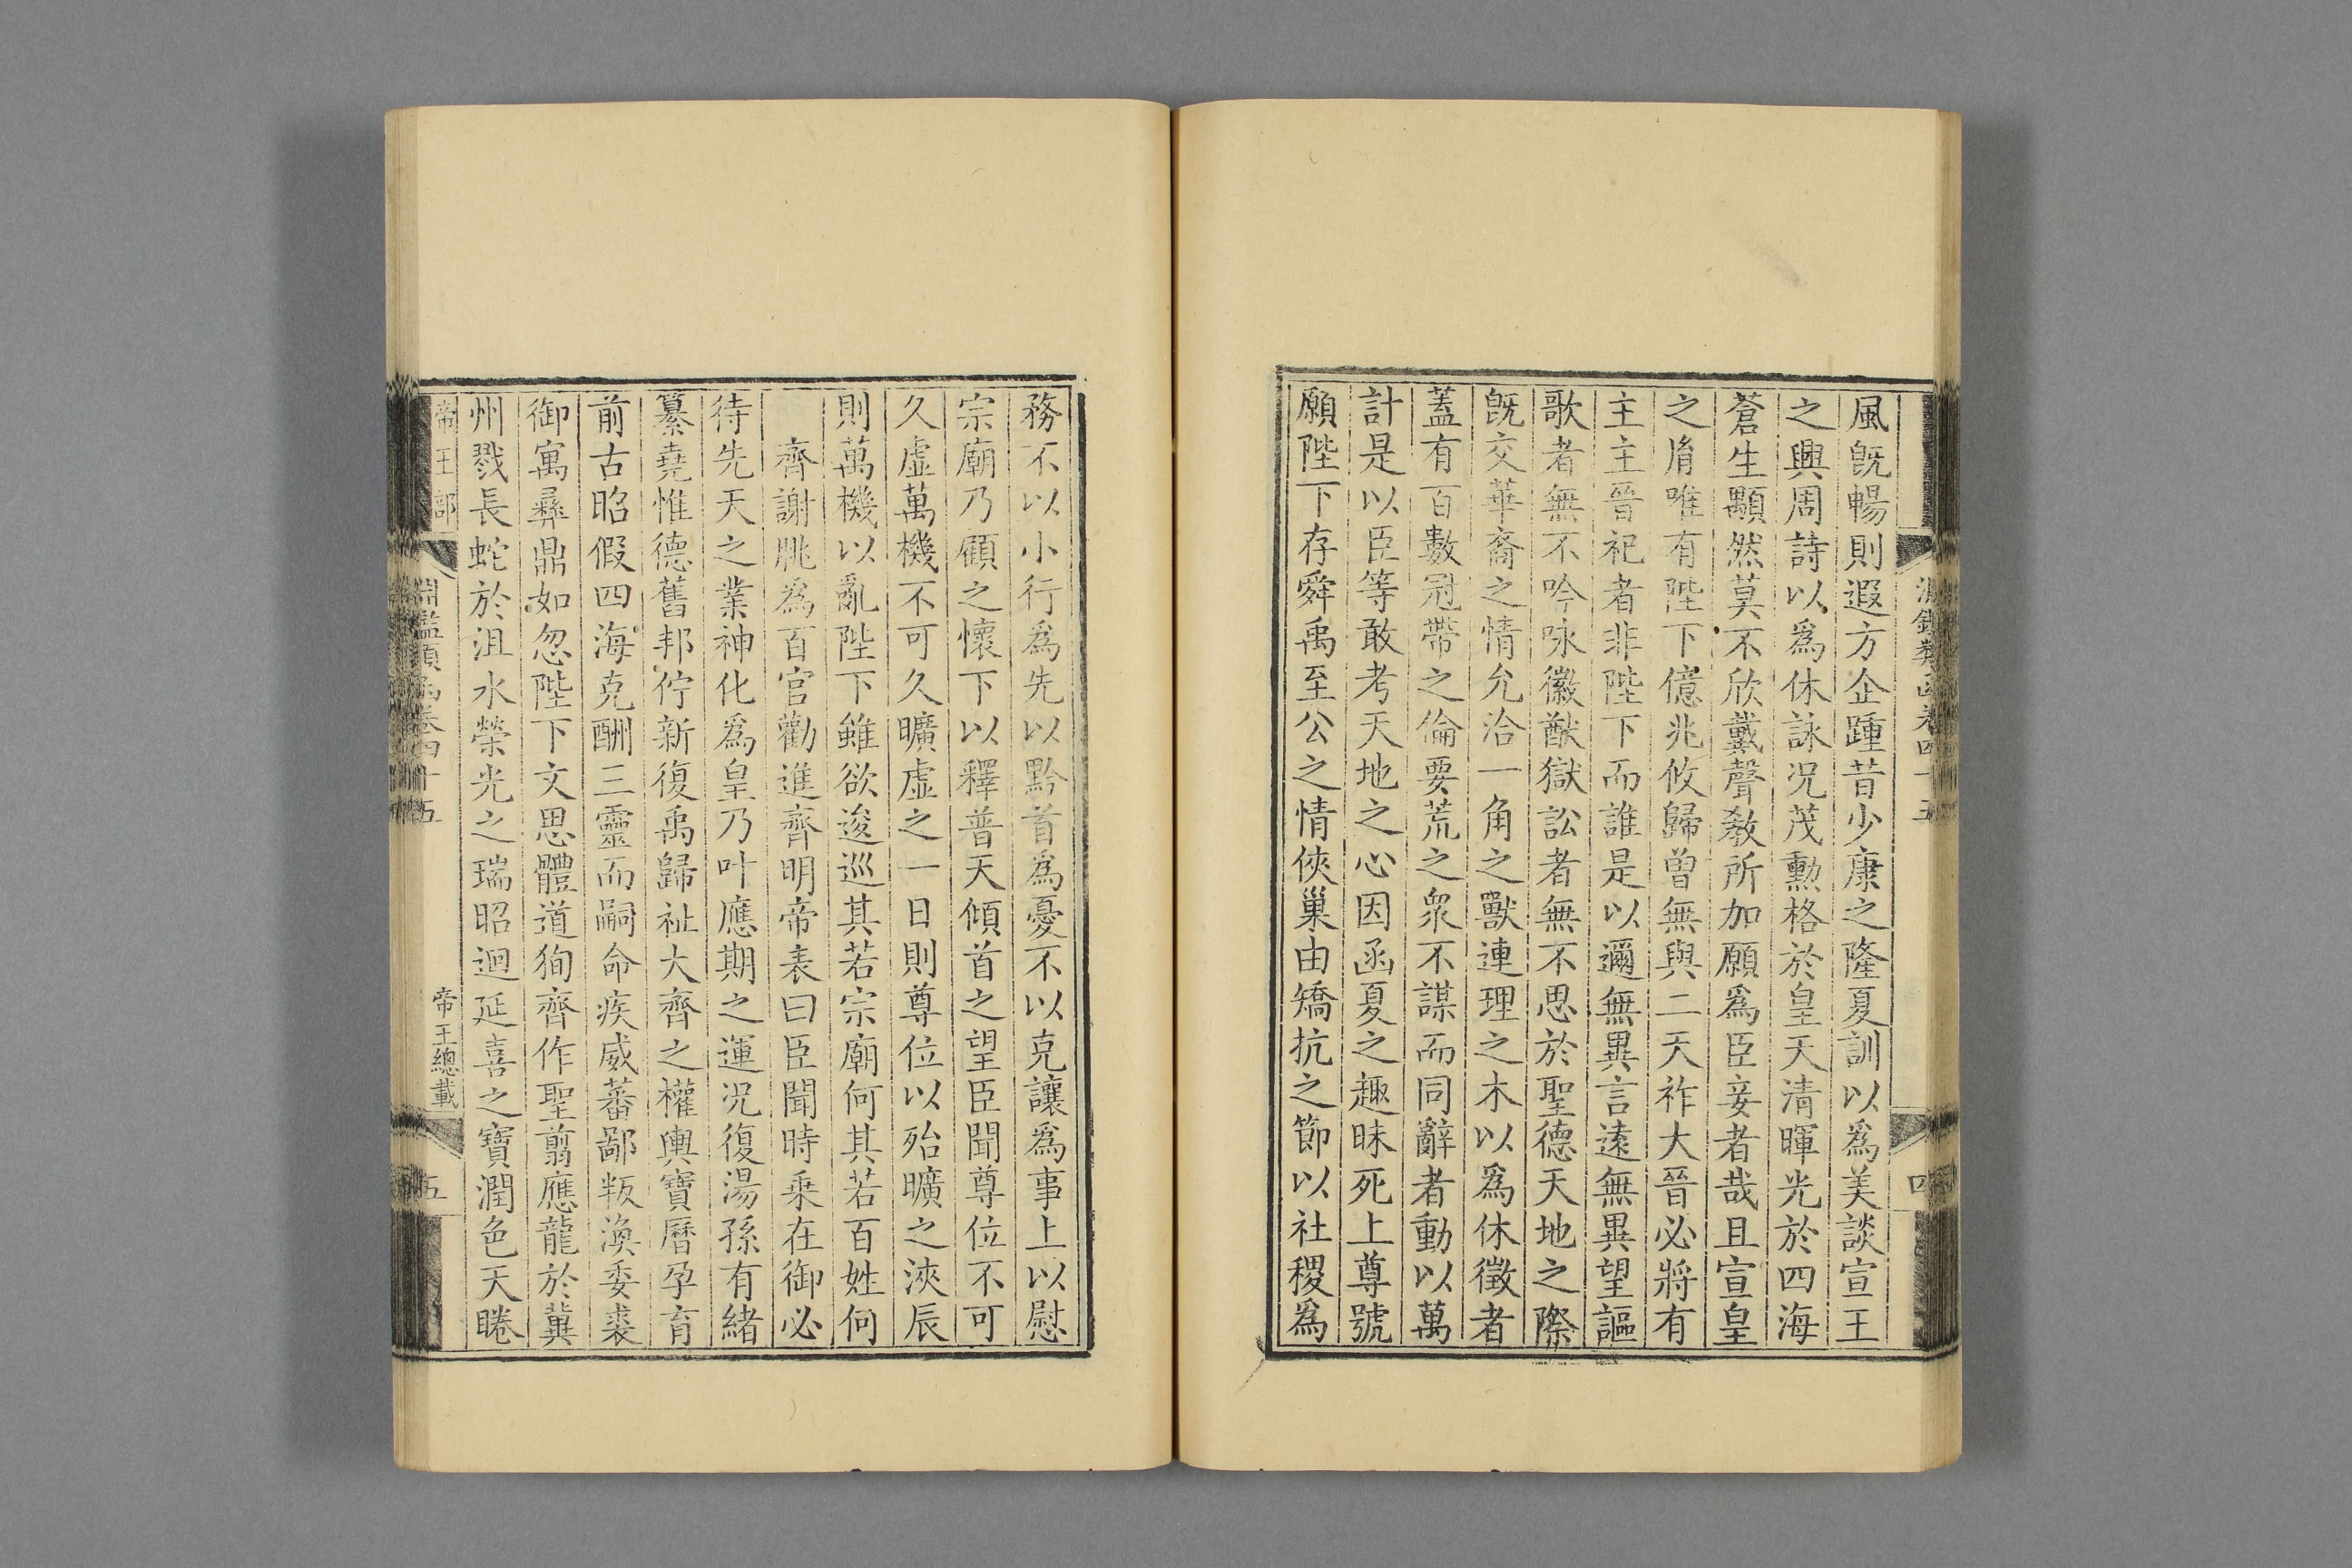 風旣暢則遐方企踵昔少康之隆夏訓以爲美談宣王
之興周詩以爲休詠况茂勲格於皇天清暉光於四海
蒼生顒然莫不欣戴聲敎所加願爲臣妾者哉且宣皇
之胤唯有陛下億兆攸歸曾無與二天祚大晉必將有
主主晉祀者非陛下而誰是以邇無異言遠無異望謳
歌者無不吟咏徽猷獄訟者無不思於聖德天地之際
旣交華裔之情允洽一角之獸連理之木以爲休徵者
蓋有百數冠帶之倫要荒之衆不謀而同辭者動以萬
計是以臣等敢考天地之心因函夏之趣昧死上尊號
願陛下存舜禹至公之情俠巢由矯抗之節以社稷爲
務不以小行爲先以黔首爲憂不以克讓爲事上以慰
宗廟乃顧之懷下以釋普天傾首之望臣聞尊位不可
久虛萬機不可久曠虛之一日則尊位以殆曠之浹辰
則萬機以亂陛下雖欲逡巡其若宗廟何其若百姓何
齊謝朓爲百官勸進齊明帝表曰臣聞時乘在御必
待先天之業神化爲皇乃叶應期之運况復湯孫有緒
纂堯惟德舊邦佇新復禹歸祉大齊之權輿寶曆孕育
前古昭假四海克酬三靈而嗣命疾威蕃鄙叛渙委裘
御寓彛鼎如忽陛下文思體道狥齊作聖翦應龍於冀
州戮長蛇於沮水榮光之瑞昭迴延喜之寶潤色天睠
帝王部
淵鑑類函卷四十五
帝王總載
五